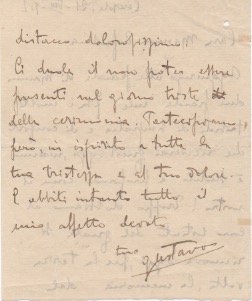 distacco dolorosissimo.
Ci duole il non poter essere
presenti nel giorno triste
della cerimonia. Parteciperemo
però, in ispirito a tutta la
tua tristezza e al tuo dolore.
E abbiti intanto tutto il
mio affetto devoto
tuo
Gustavo